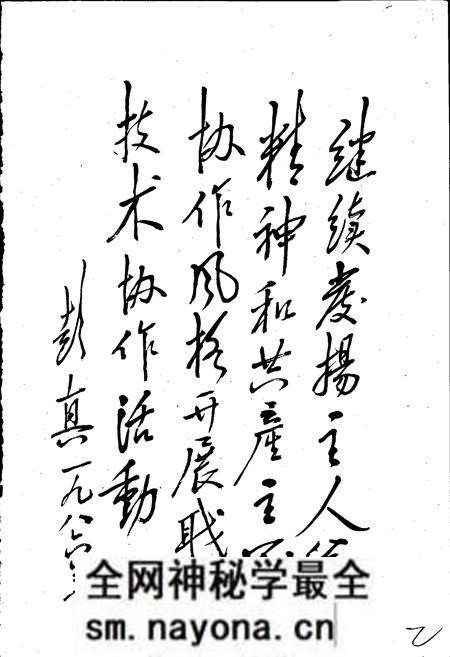 继续发揚主人
精神和共產主
协作风格开展职
技术协作活動
彭真一九八六
全网神秘学最全
sm.nayona.cn